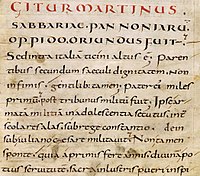 GITUR MARTINUS
SABBARIAE PANNONIARŪ
OPPIDO ORIUNDUS FUIT
Sed intra italiā ticini altus ē paren
tibus secundum saeculi dignitatem non
infimis gentilib tamen pater ei miles
primū post tribunus militū fuit Ipse ar
matā militiā in adolescentia secutus int
scolares alas sub rege constantio dein
sub iuliano caesare militavit Non tamen
sponte quia a primis fere annis divinā po
tius servitutē sacra inlustris pueri inspi